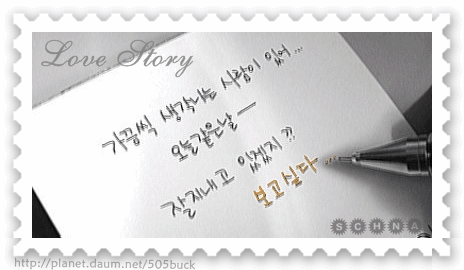 Love Story
가끔씩 생각나는 사람이 있어...
오늘같은날 —
잘지내고 있겠지??
보고싶다...
SCHNA
http://planet.daum.net/505buck